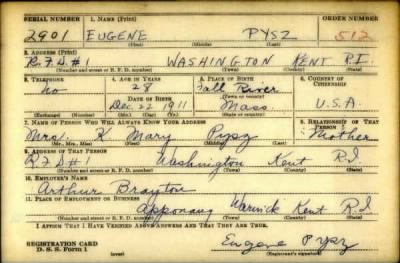 SERIAL NUMBER 1. NAME (Print) ORDER NUMBER
2901 EUGENE PYSZ 512
(First) (Middle) (Last)
2. ADDRESS (Print)
R.F.D.#1 WASHINGTON KENT R.I.
(Number and street or R. F. D. number) (Town) (County) (State)
3. TELEPHONE 4. AGE IN YEARS 5. PLACE OF BIRTH 6. COUNTRY OF CITIZENSHIP
no 28 Fall River
DATE OF BIRTH (Town or county)
Dec. 22 1911 Mass. U.S.A.
(Exchange) (Number) (Mo.) (Day) (Yr.) (State or country)
7. NAME OF PERSON WHO WILL ALWAYS KNOW YOUR ADDRESS 8. RELATIONSHIP OF THAT PERSON
Mrs. K Mary Pysz Mother
(Mr., Mrs., Miss) (First) (Middle) (Last)
9. ADDRESS OF THAT PERSON
R.F.D#1 Washington Kent R.I.
(Number and street or R. F. D. number) (Town) (County) (State)
10. EMPLOYER'S NAME
Arthur Brayton
11. PLACE OF EMPLOYMENT OR BUSINESS
Apponaug Warwick Kent R.I
(Number and street or R. F. D. number) (Town) (County) (State)
I AFFIRM THAT I HAVE VERIFIED ABOVE ANSWERS AND THAT THEY ARE TRUE.
Eugene Pysz
REGISTRATION CARD
D. S. S. Form 1 (over) (Registrant's signature)